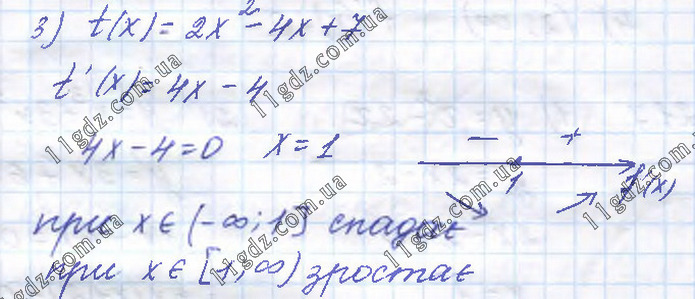 3) t(x) = 2x² - 4x + 7
t'(x) = 4x - 4
4x - 4 = 0 x = 1 - +
1 f'(x)
при x ∈ (-∞; 1] спадає
при x ∈ [1; ∞) зростає
11gdz.com.ua
11gdz.com.ua
11gdz.com.ua
11gdz.com.ua
11gdz.com.ua
11gdz.com.ua